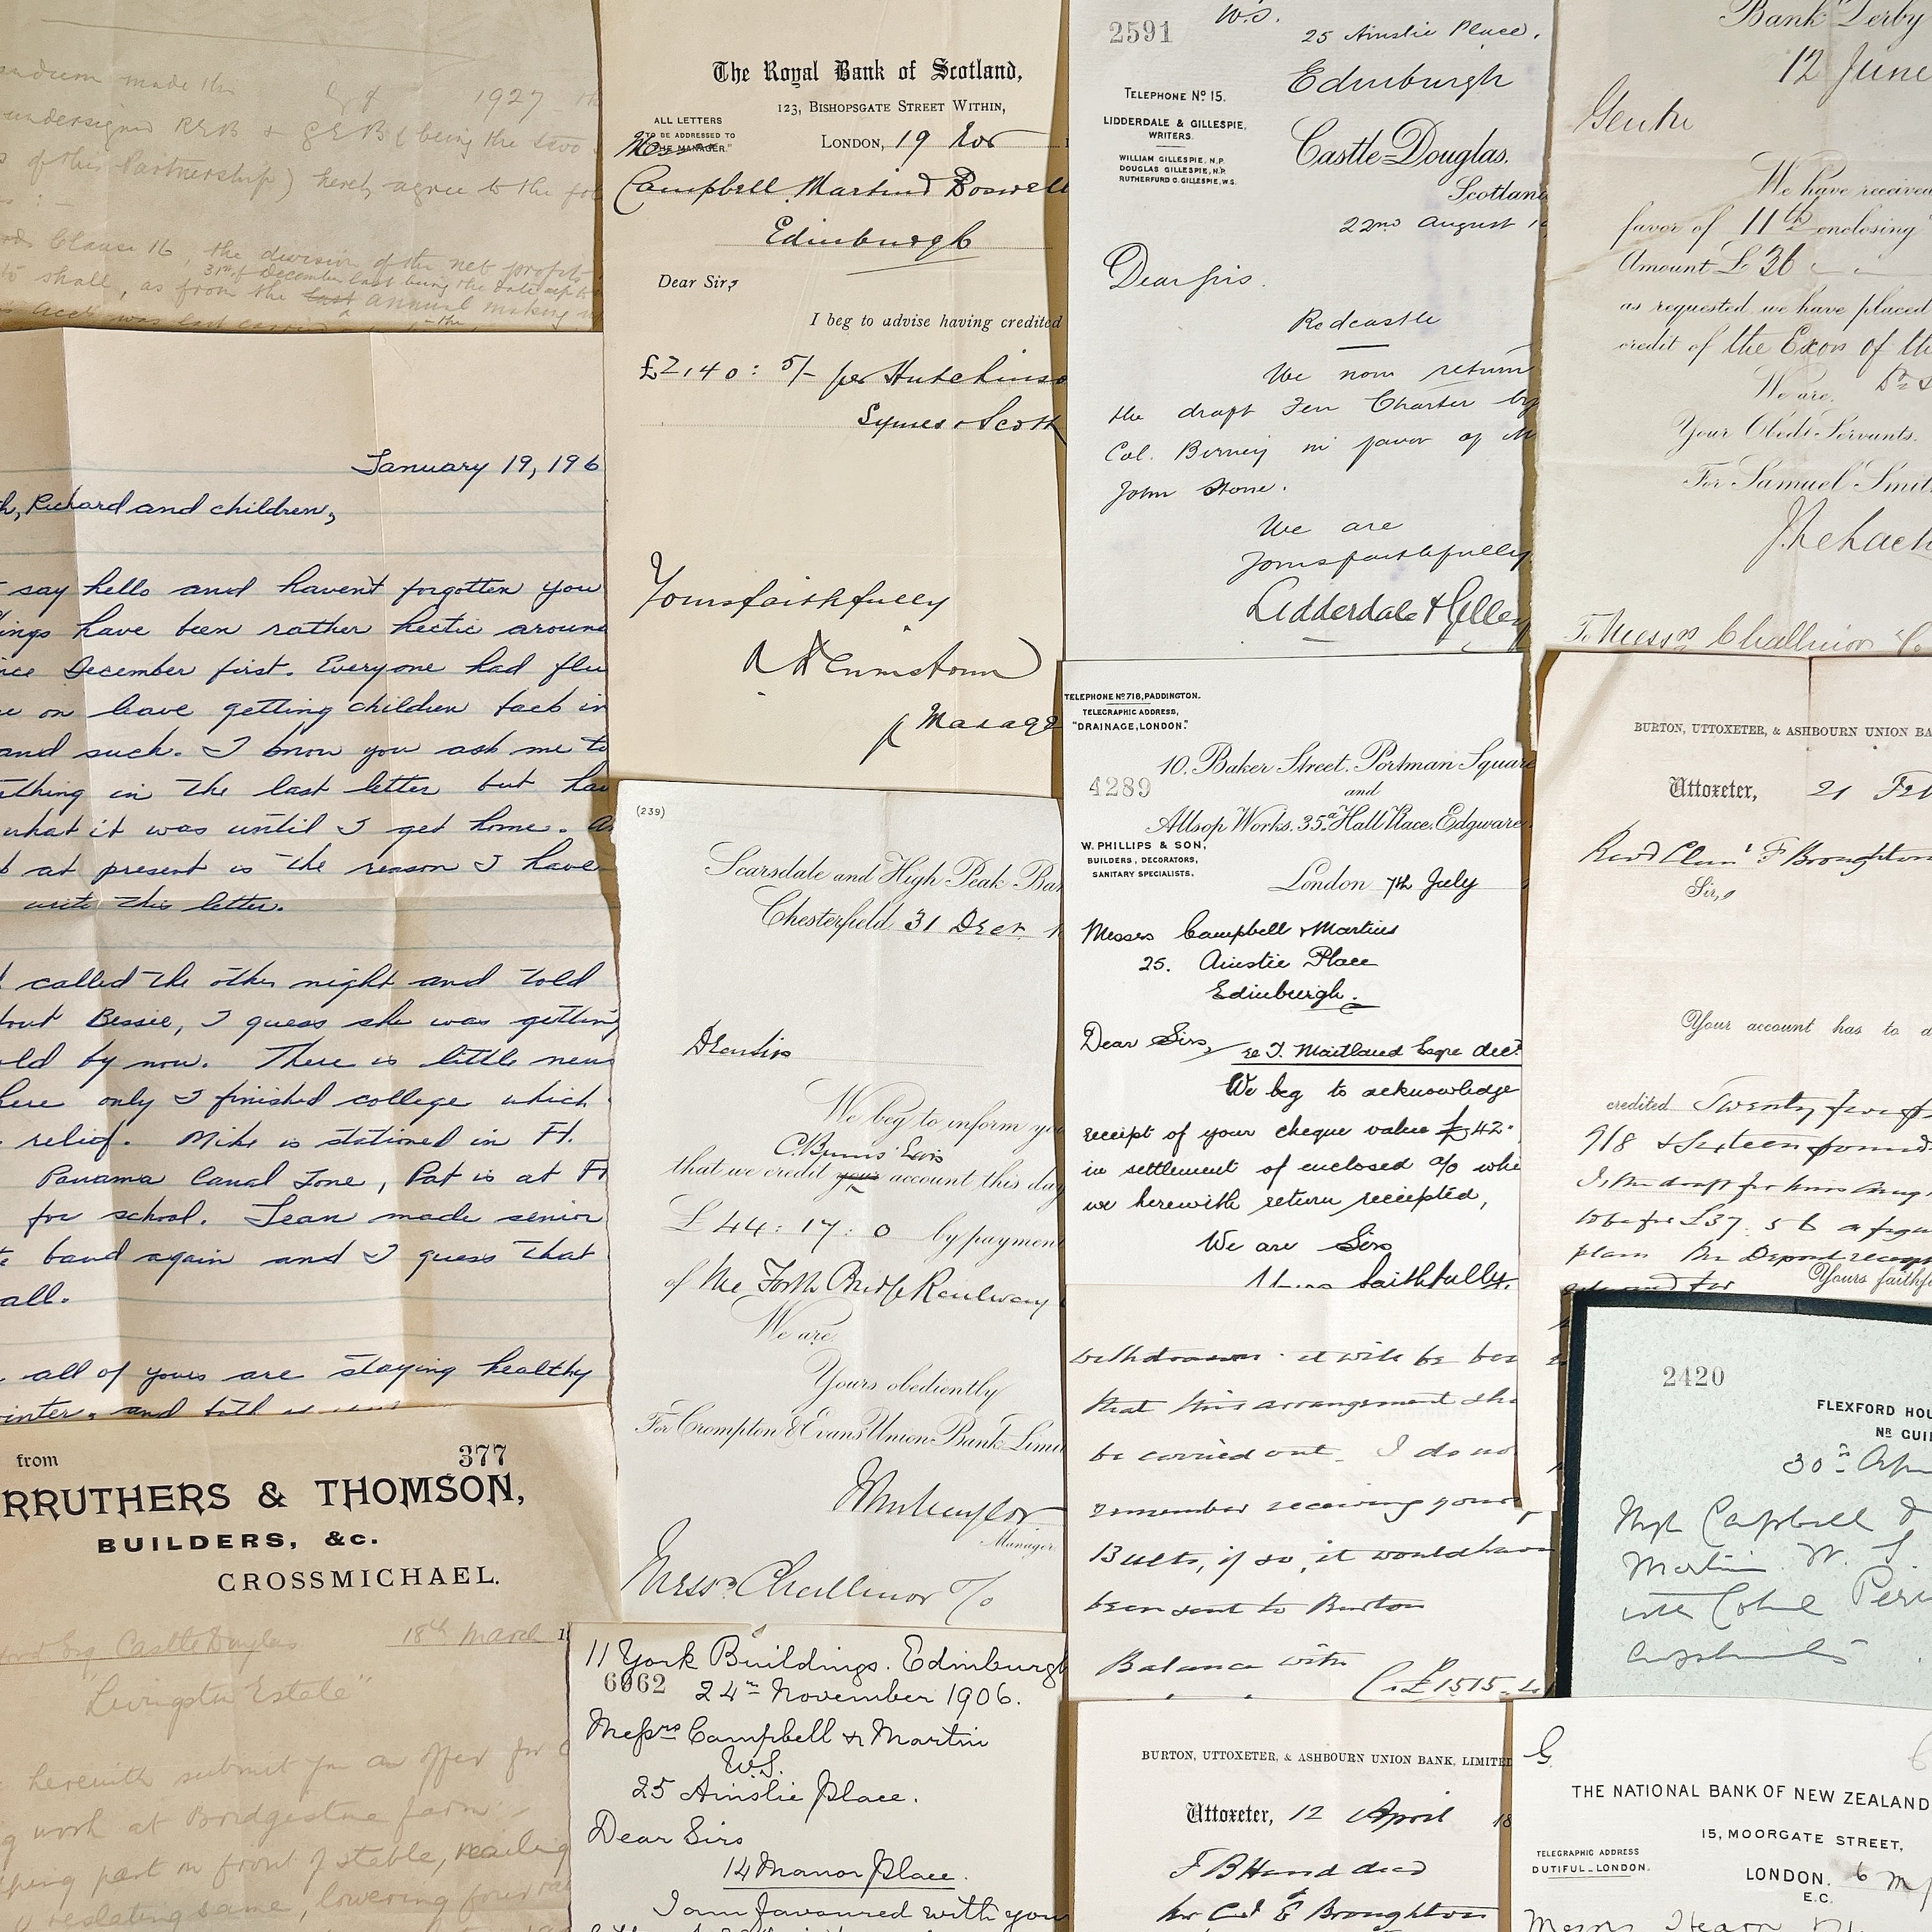 made the 1927
undersigned REB + GEB (being the two
of this Partnership) hereby agree to the
Clause 16, the division of the net profits
31st of December last being the date up to
shall, as from the last annual making
was last carried
January 19, 196
Richard and children,
say hello and haven't forgotten you
have been rather hectic around
December first. Everyone had flu
on leave getting children back in
and such. I know you ask me to
in the last letter but
what it was until I get home.
at present is the reason I have
write this letter.
called the other night and told
Bessie, I guess she was getting
old by now. There is little news
here only I finished college which
relief. Mike is stationed in Ft.
Panama Canal Zone, Pat is at Ft
for school. Jean made senior
band again and I guess that
all.
all of yours are staying healthy
winter, and
from
377
RRUTHERS & THOMSON,
BUILDERS, &c.
CROSSMICHAEL.
Esq Castle Douglas 18th March 1
"Livingston Estate"
herewith submit you an offer for
work at Bridgestone farm
part in front of stable,
same, lowering
The Royal Bank of Scotland,
123, BISHOPSGATE STREET WITHIN,
ALL LETTERS
TO BE ADDRESSED TO
"THE MANAGER."
LONDON, 19 Nov
Campbell Martin & Boswell
Edinburgh
Dear Sirs
I beg to advise having credited
£2,140: 5/- per Hutchinso
Symes & Scott
Yours faithfully
p Manage
(239)
Scarsdale and High Peak Ba
Chesterfield 31 Decr 1
Dear Sirs
We beg to inform you
that we credit your account this day
£44:17:0 by payment
of the Forth Bridge Railway
We are,
Yours obediently
For Crompton & Evans Union Bank Limi
Manager.
Messrs Challinor &Co
11 York Buildings. Edinburgh
6962 24th November 1906.
Messrs Campbell & Martin
W.S.
25 Ainslie Place.
Dear Sirs
14 Manor Place.
I am favoured with your
2591
W.S.
25 Ainslie Place,
Edinburgh
TELEPHONE No 15.
LIDDERDALE & GILLESPIE,
WRITERS.
WILLIAM GILLESPIE, N.P.
DOUGLAS GILLESPIE, N.P.
RUTHERFURD G. GILLESPIE, W.S.
Castle-Douglas.
Scotland
22nd August 1
Dear Sirs.
Redcastle
We now return
the draft Feu Charter by
Col. Birney in favor of
John Stone.
We are
Yours faithfully,
Lidderdale & Gilles
TELEPHONE No 716, PADDINGTON.
TELEGRAPHIC ADDRESS,
"DRAINAGE, LONDON."
10, Baker Street, Portman Square
4289
and
Allsop Works, 35a Hall Place, Edgware
W. PHILLIPS & SON,
BUILDERS, DECORATORS,
SANITARY SPECIALISTS.
London 7th July
Messrs Campbell & Martin
25. Ainslie Place
Edinburgh.
Dear Sirs,
re J. Maitland Esqre decd
We beg to acknowledge
receipt of your cheque value £42
in settlement of enclosed a/c whi
we herewith return receipted,
We are Sirs
Yours faithfully,
withdrawn. it will be
that this arrangement
be carried out. I do no
remember receiving your
if so, it would have
been sent to Burton
Balance with
£1515
BURTON, UTTOXETER, & ASHBOURN UNION BANK, LIMITED
Uttoxeter, 12 April 18
F B Hand decd
Broughton
Bank Derby
12 June
Gentn
We have received
favor of 11th enclosing
Amount £36
as requested we have placed
credit of the Exors of th
We are,
Your Obedt Servants.
For Samuel Smit
To Messrs Challinor & Co.
BURTON, UTTOXETER, & ASHBOURN UNION BA
Uttoxeter, 21 Feb
Revd F Broughton
Sir,
Your account has to
credited Twenty
9/8 & Sixteen pound
to be for £37. 5 6 a
plain
Yours faithf
2420
FLEXFORD HOU
NR GUI
30th Apr
Campbell &
Martin W. S.
with
G
THE NATIONAL BANK OF NEW ZEALAND
15, MOORGATE STREET,
TELEGRAPHIC ADDRESS
DUTIFUL-LONDON.
LONDON. 6 M
E.C.
Messrs